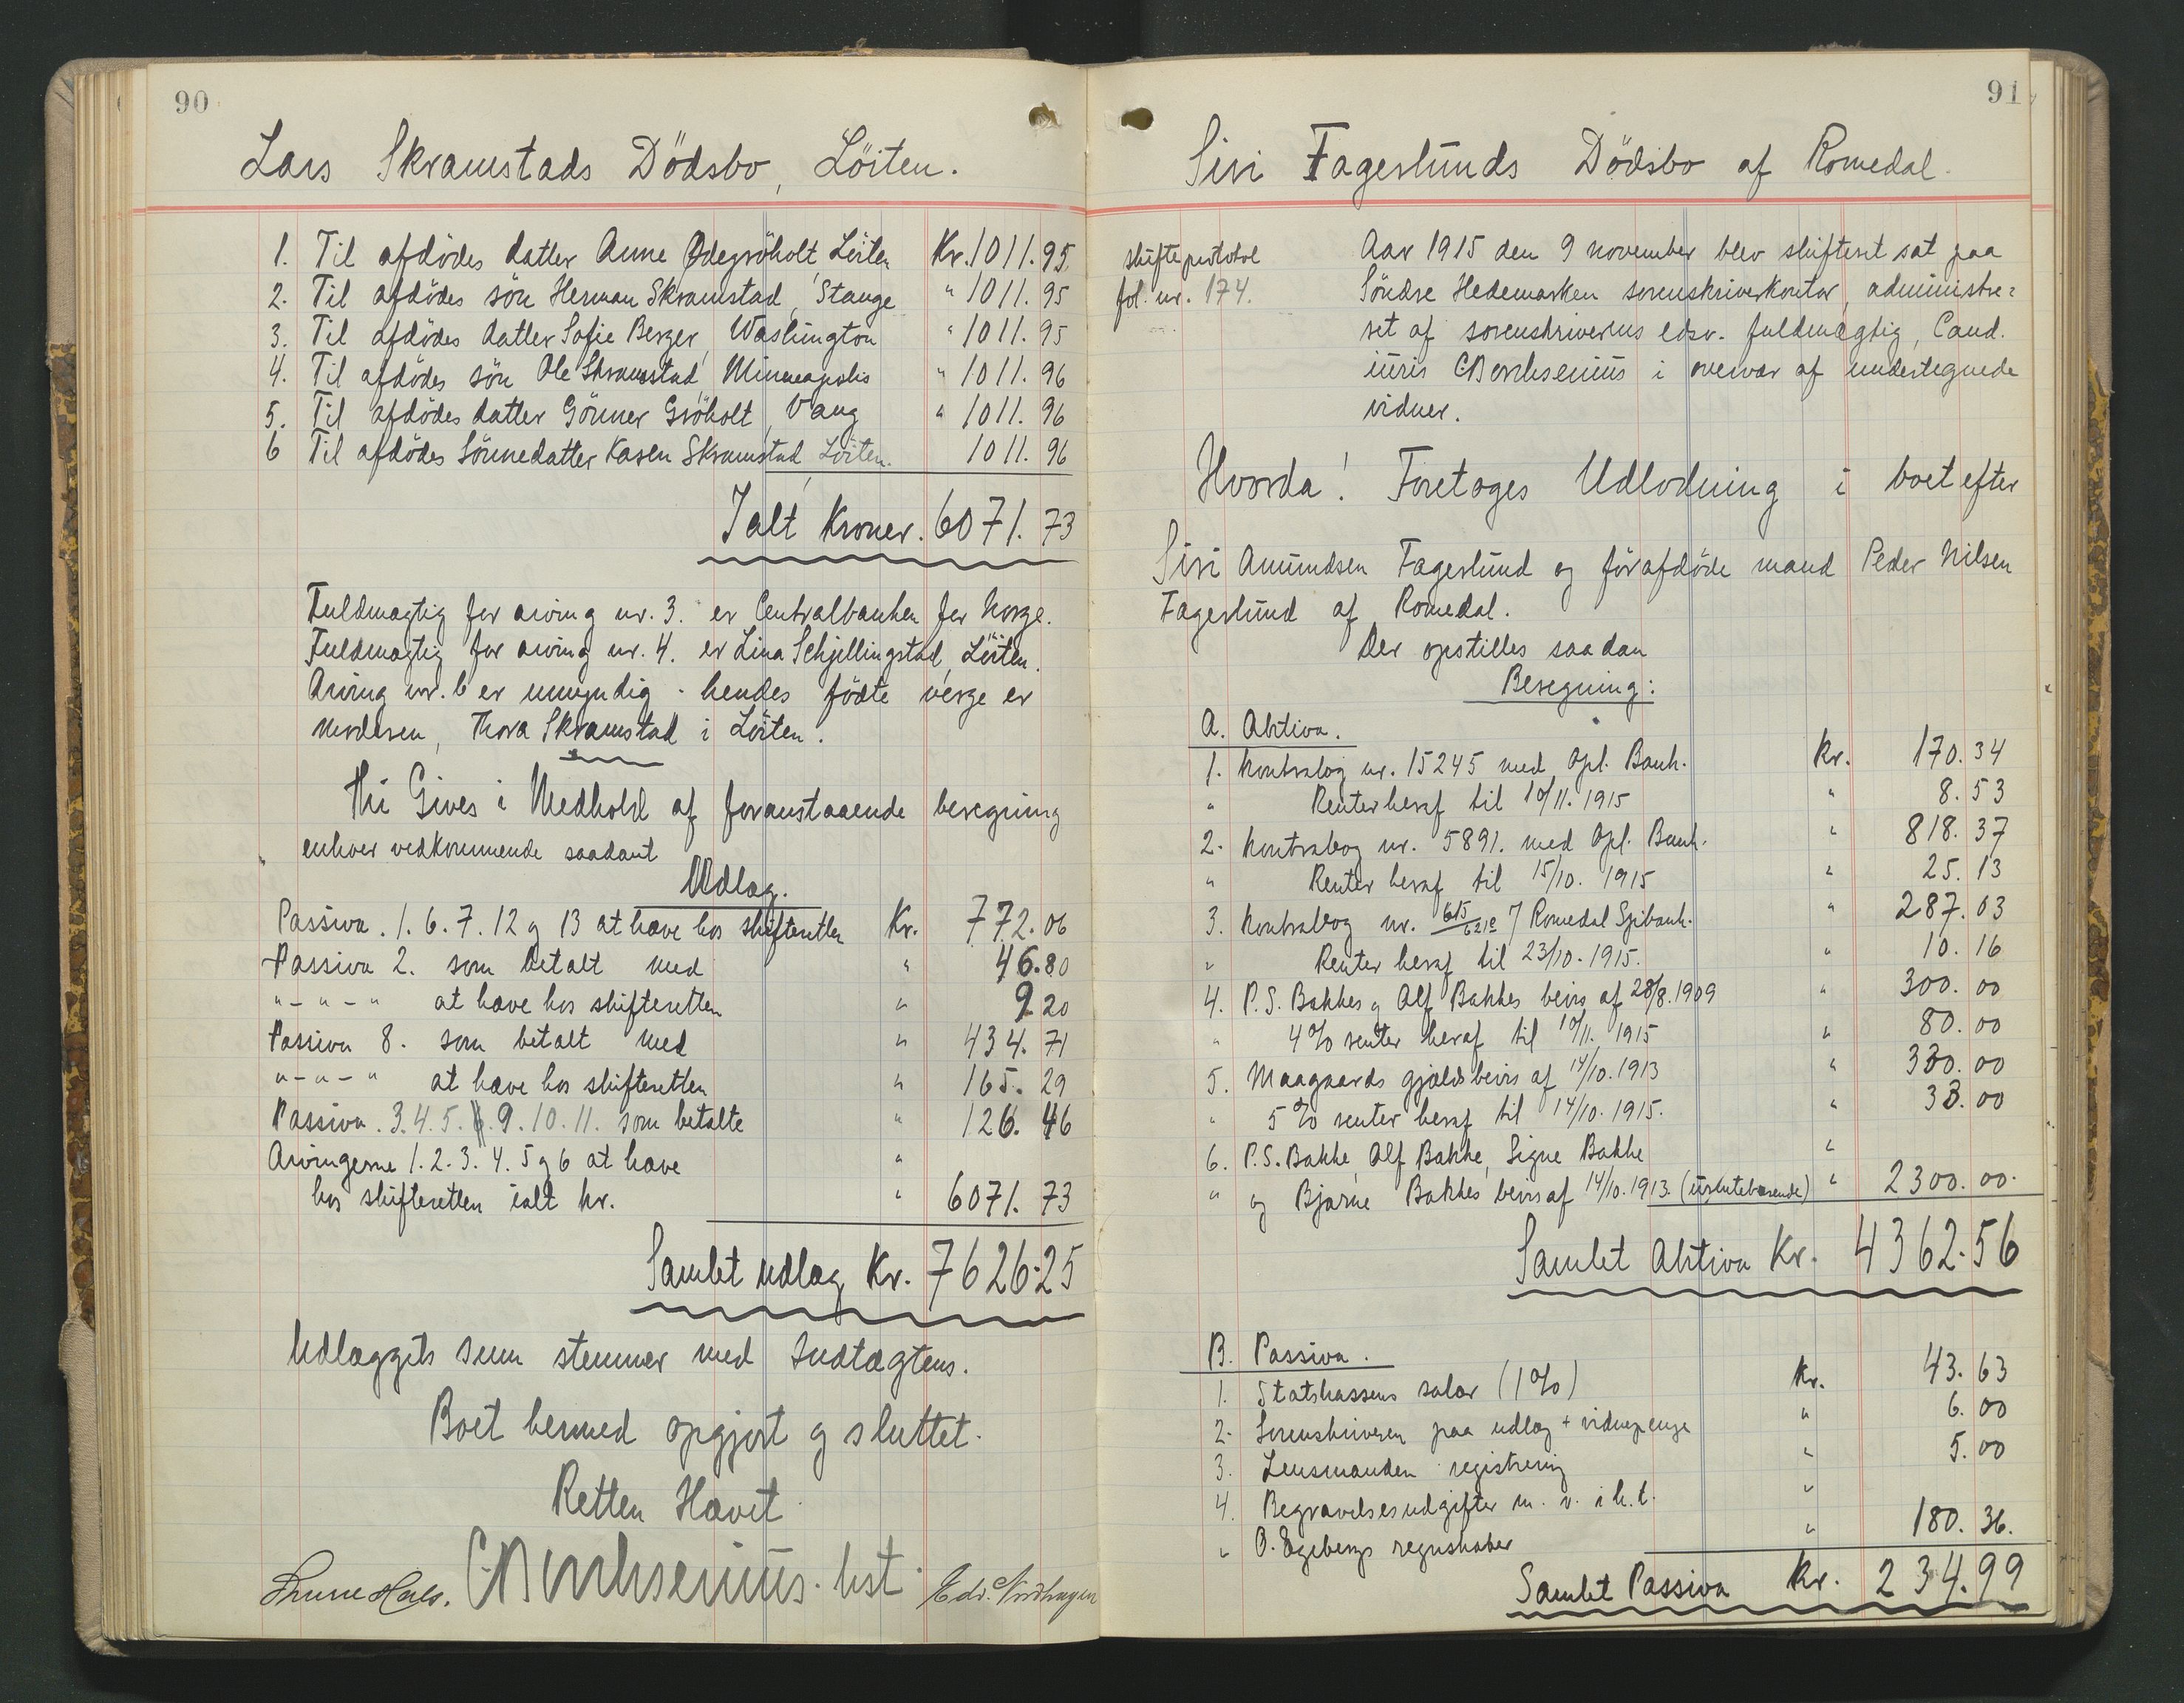 90
Lars Skramstads Dödsbo, Löiten.
1. Til afdödes datter Anne Ödegröholt Löiten Kr. 1011.95
2. Til afdödes sön Herman Skramstad, Stange " 1011.95
3. Til afdödes datter Sofie Berger, Washington " 1011.95
4. Til afdödes sön Ole Skramstad, Minneapolis " 1011.96
5. Til afdödes datter Gönner Gröholt, Vang " 1011.96
6 Til afdödes Sönnedatter Karen Skramstad Löiten. 1011.96
Ialt Kroner. 6071.73
Fuldmægtig for arving nr. 3. er Centralbanken for Norge.
Fuldmægtig for arving nr. 4. er Lina Schjellingstad, Löiten.
Arving nr. 6 er umyndig - hendes födte verge er
moderen, Thora Skramstad i Löiten.
Thi Gives i Medhold af foranstaaende beregning
enhver vedkommende saadant
Udlæg.
Passiva. 1. 6. 7. 12 og 13 at have hos skifteretten Kr. 772.06
Passiva 2. som betalt med " 46.80
" - " - " at have hos skifteretten " 9 20
Passiva 8. som betalt med " 434.71
" - " - " at have hos skifteretten " 165.29
Passiva. 3. 4. 5. 9. 10. 11. som betalte " 126.46
Arvingerne 1. 2. 3. 4. 5 og 6 at have "
hos skifteretten ialt kr. " 6071.73
Samlet udlæg Kr. 7626.25
Udlæggets sum stemmer med Indtægtens.
Boet hermed opgjort og sluttet.
Retten Hævet.
CBorchsenius. kst. Edv. Nordhagen
91
Siri Fagerlunds Dödsbo af Romedal.
skifteprotokol
fol. nr. 174.
Aar 1915 den 9 november blev skifteret sat paa
Söndre Hedemarken sorenskriverkontor, administre=
ret af sorenskriverens edsv. fuldmægtig, Cand.
iuris CBorchsenius i overvær af undertegnede
vidner.
Hvorda! Foretoges Udlodning i boet efter
Siri Amundsen Fagerlund og förafdöde mand Peder Nilsen
Fagerlund af Romedal.
Der opstilles saadan
Beregning:
A. Aktiva.
1. Kontrabog nr. 15245 med Opl. Bank. Kr. 170.34
" Renter heraf til 10/11. 1915 " 8.53
2. Kontrabog nr. 5891. med Opl. Bank. " 818.37
" Renter heraf til 15/10. 1915 " 25.13
3. Kontrabog nr. 615/6212 / Romedal Spbank. " 287.03
" Renter heraf til 23/10. 1915. " 10.16
4. P. S. Bakkes og Alf Bakkes bevis af 28/8. 1909 " 300.00
" 4% renter heraf til 10/11. 1915 " 80.00
5. Maagaards gjældsbevis af 14/10. 1913 " 330.00
" 5% renter heraf til 14/10. 1915. " 33.00
6. P. S. Bakke, Alf Bakke, Signe Bakke "
" og Bjarne Bakkes bevis af 14/10. 1913. (urentebærende) " 2300.00.
Samlet Aktiva Kr. 4362.56
B. Passiva.
1. Statskassens salær (1%) Kr. 43.63
2. Sorenskriveren paa udlæg + vidnepenge " 6.00
3. Lensmanden registrering " 5.00
4. Begravelsesudgifter m. v. i h. t. "
" O. Egebergs regnskaber " 180.36.
Samlet Passiva Kr. 234.99